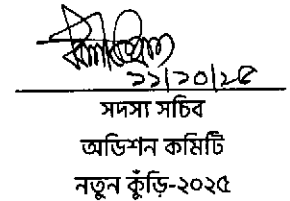 ১১/১০/২৫
সদস্য সচিব
অডিশন কমিটি
নতুন কুঁড়ি-২০২৫